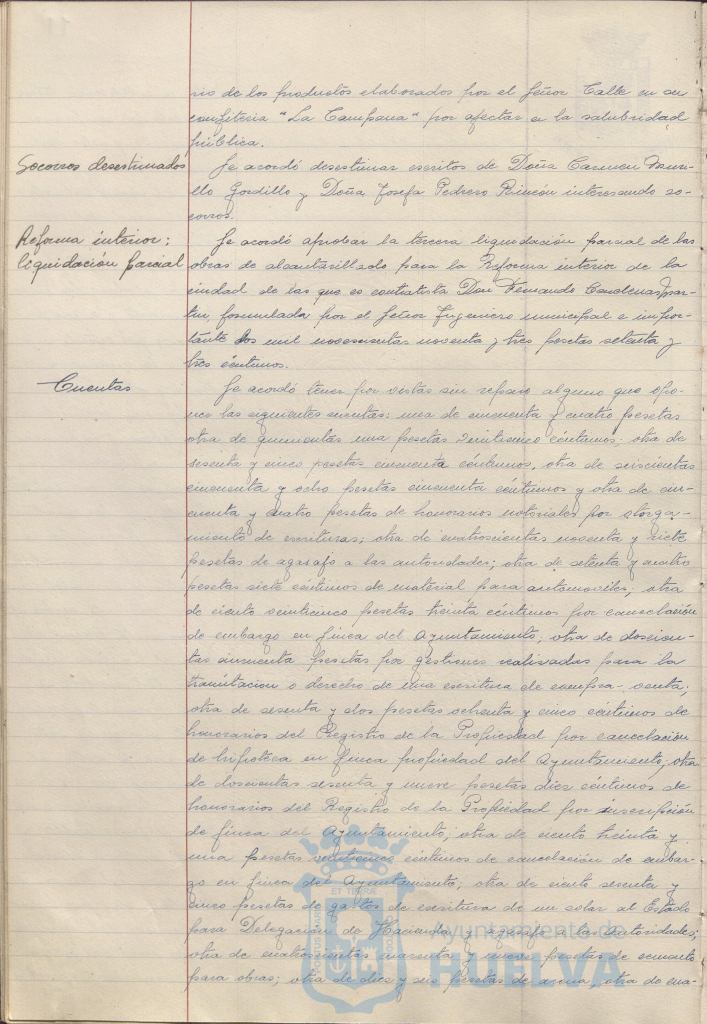 rio de los productos elaborados por el Señor Calle en su
confitería "La Campana" por afectar a la salubridad
pública.
Socorros desestimados
Se acordó desestimar escritos de Doña Carmen Muri-
llo Gordillo y Doña Josefa Pedrero Rincón interesando so-
corros.
Reforma interior:
liquidación parcial
Se acordó aprobar la tercera liquidación parcial de las
obras de alcantarillado para la Reforma interior de la
ciudad de las que es contratista Don Fernando Candenas Mar-
tin formulada por el Señor Ingeniero municipal e impor-
tante dos mil novecientas noventa y tres pesetas setenta y
tres céntimos.
Cuentas
Se acordó tener por vistas sin reparo alguno que opo-
ner las siguientes cuentas: una de cincuenta y cuatro pesetas
otra de quinientas una pesetas veinticinco céntimos; otra de
sesenta y cinco pesetas cincuenta céntimos, otra de seiscientas
cincuenta y ocho pesetas cincuenta céntimos y otra de cin-
cuenta y cuatro pesetas de honorarios notariales por otorga-
miento de escrituras; otra de cuatrocientas noventa y siete
pesetas de agasajo a las autoridades; otra de setenta y cuatro
pesetas siete céntimos de material para automoviles; otra
de ciento veinticinco pesetas treinta céntimos por cancelación
de embargo en finca del Ayuntamiento; otra de doscien-
tas cincuenta pesetas por gestiones realizadas para la
tramitacion o derecho de una escritura de compra-venta;
otra de sesenta y dos pesetas ochenta y cinco céntimos de
honorarios del Registro de la Propiedad por cancelación
de hipoteca en finca propiedad del Ayuntamiento; otra
de doscientas sesenta y nueve pesetas diez céntimos de
honorarios del Registro de la Propiedad por inscripción
de finca del Ayuntamiento; otra de ciento treinta y
una pesetas céntimos de cancelación de embar-
go en finca del Ayuntamiento; otra de ciento sesenta y
cinco pesetas de gastos de escritura de un solar al Estado
para Delegación de Hacienda y agasajo a las autoridades;
otra de cuatrocientas cuarenta y nueve pesetas de cemento
para obras; otra de diez y seis pesetas de arena, otra de cua-
PORTUS MARIS
ET TERRAE
CUSTODIA
Ayuntamiento de
HUELVA